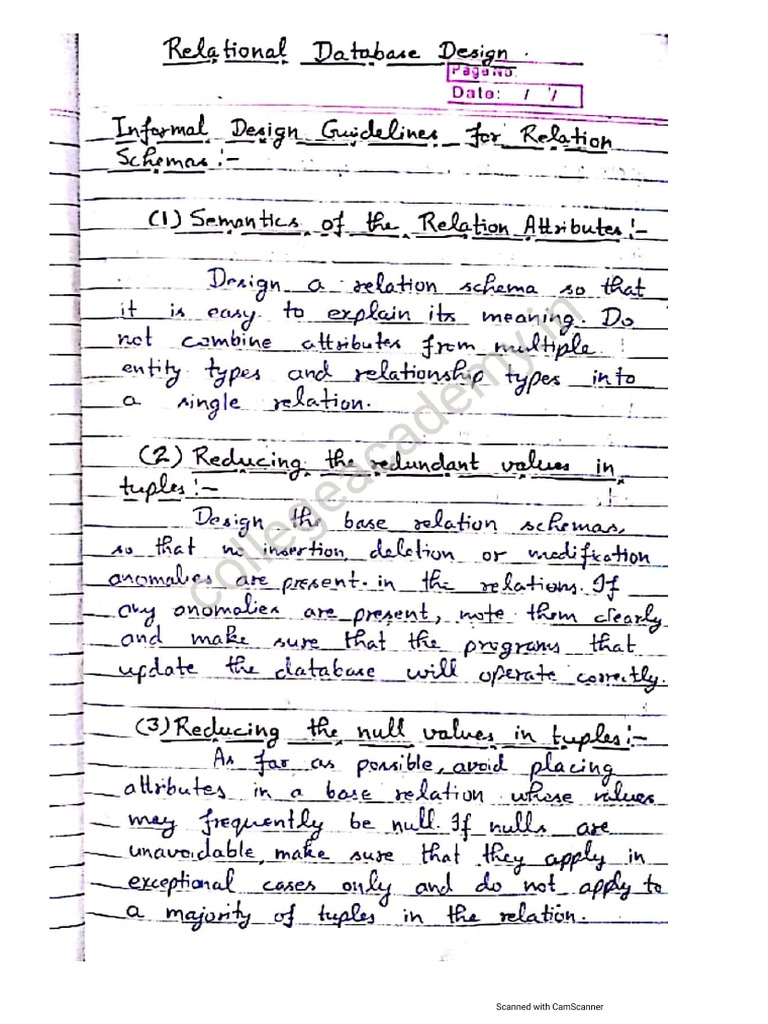 Relational Database Design.
Page No.
Date: / /
Informal Design Guidelines for Relation
Schemas:-
(1) Semantics of the Relation Attributes:-
Design a relation schema so that
it is easy to explain its meaning. Do
not combine attributes from multiple
entity types and relationship types into
a single relation.
(2) Reducing the redundant values in
tuples:-
Design the base relation schemas,
so that no insertion, deletion or modification
anomalies are present in the relations. If
any anomalies are present, note them clearly
and make sure that the programs that
update the database will operate correctly.
(3) Reducing the null values in tuples:-
As far as possible, avoid placing
attributes in a base relation whose values
may frequently be null. If nulls are
unavoidable, make sure that they apply in
exceptional cases only and do not apply to
a majority of tuples in the relation.
collegeacademy.in
Scanned with CamScanner